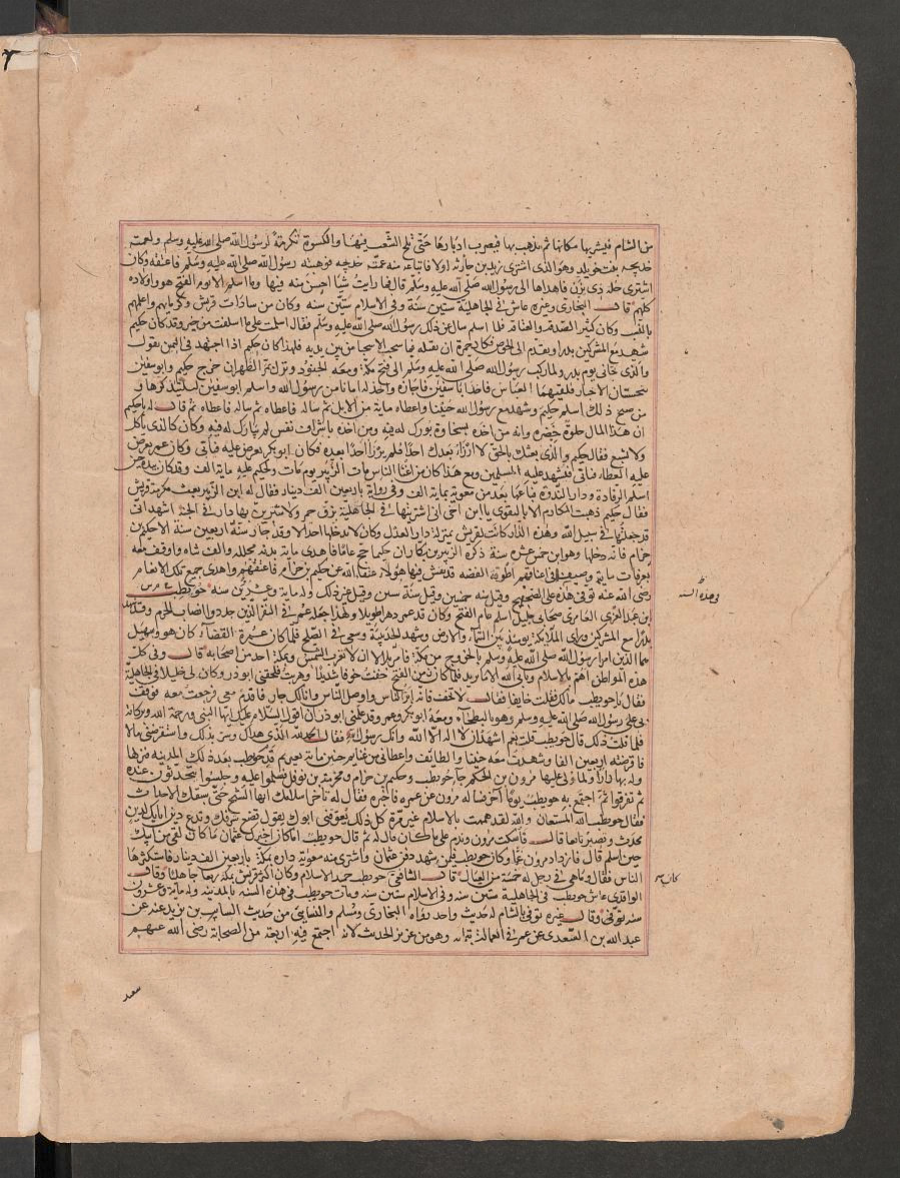 من الشام فيشتريها بكمالها ثم يذهب بها فيضرب ادبارها حتى تلج الشعب فيها والكسوة تكرمة لرسول الله صلى الله عليه وسلم ولعمته
خديجة بنت خويلد وهو الذى اشترى زيد بن حارثة اولا فابتاعته منه عمته خديجة فوهبته رسول الله صلى الله عليه وسلم فاعتقه وكان
اشترى حلة ذى يزن فاهداها الى رسول الله صلى الله عليه وسلم قال فما رايت شيا احسن منه فيها وما اسلم الا يوم الفتح هو واولاده
كلهم قال البخارى وغيره عاش فى الجاهلية ستين سنة وفى الاسلام ستين سنه وكان من سادات قريش وكرمايهم واعلمهم
بالنسب وكان كثير الصدقة والعتاقة فلما اسلم سال عن ذلك رسول الله صلى الله عليه وسلم فقال اسلمت على ما اسلفت من خير وقد كان حكيم
شهد مع المشركين بدرا وتقدم الى الحوض فكاد حمزة ان يقتله فما سحب الا سحبا من بين يديه فلهذا كان حكيم اذا اجتهد فى اليمين يقول
والذى نجانى يوم بدر ولما ركب رسول الله صلى الله عليه وسلم الى فتح مكة ومعه الجنود ونزل بمر الظهران خرج حكيم وابو سفين
يتجسسان الاخبار فلقيهما العباس فاخذ ابا سفين فاجاره واخذ له امانا من رسول الله واسلم ابو سفين ليلتيذ كرها و
من صبح ذلك اسلم حكيم وشهد مع رسول الله حنينا واعطاه ماية من الابل ثم ساله فاعطاه ثم ساله فاعطاه ثم قال له يا حكيم
ان هذا المال حلوة خضرة وانه من اخذه بسخاوة بورك له فيه ومن اخذه باشراف نفس لم يبارك له فيه وكان كالذى ياكل
ولا يشبع فقال حكيم والذى بعثك بالحق لا ارزا بعدك احدا فلم يرزا احدا بعده فكان ابو بكر يعرض عليه فيابى وكان عمر يعرض
عليه العطاء فيابى فيشهد عليه المسلمين ومع هذا كان من اغنا الناس مات الزبير يوم مات ولحكيم عليه ماية الف وقد كان بيده حين
اسلم الرفادة ودار الندوة فباعها بعد من معوية بماية الف وفى رواية باربعين الف دينار فقال له ابن الزبير بعت مكرمة قريش
فقال حكيم ذهبت المكارم الا التقوى يا ابن اخى انى اشتريتها فى الجاهلية بزق خمر ولاشترين بها دارا فى الجنة اشهد انى
قد جعلتها فى سبيل الله وهذه الدار كانت لقريش بمنزلة دار العدل وكان لا يدخلها احد الا وقد جاز سنه اربعين سنة الا حكيم بن
حزام فانه دخلها وهو ابن خمس عشره سنة ذكره الزبير بن بكار وان حكيما حج عاما فاهدى ماية بدنه مجللة والف شاه واوقف معه
بعرفات ماية وصيف فى اعناقهم اطوقة الفضه قد نقش فيها هولاء عتقاء الله عن حكيم بن حزام فاعتقهم واهدى جميع تلك الانعام
رضى الله عنه توفى هذه على الصحيح وقيل سنه خمسين وقيل سنة ستين وقيل غير ذلك وله ماية وعشرون سنه حويطب
بن عبد العزى العامرى صحابى جليل اسلم عام الفتح وكان قد عمر دهرا طويلا ولهذا جعله عمر فى النفر الذين جددوا انصاب الحرم وقد شهد
بدرا مع المشركين وراى الملايكة يوميذ بين السماء والارض وشهد الحديبية وسعى فى الصلح فلما كان عمرة القضاء كان هو وسهيل
هما الذين امرا رسول الله صلى الله عليه وسلم بالخروج من مكة فامر بلالا ان لا تغرب الشمس وبمكة احد من اصحابه قال وفى كل
هذه المواطن اهم بالاسلام ويابى الله الا ما يريد فلما كان زمن الفتح خفت خوفا شديدا وهربت فلحقنى ابو ذر وكان لى خليلا فى الجاهلية
فقال يا حويطب مالك فقلت خايفا فقال لا تخف فانه ابر الناس واوصل الناس وانا لك جار فاقدم معى فرجعت معه فوقف
بى على رسول الله صلى الله عليه وسلم وهو بالبطحاء ومعه ابو بكر وعمر وقد علمنى ابو ذر ان اقول السلام عليك ايها النبى ورحمة الله وبركاته
فلما قلت ذلك قال حويطب قلت نعم اشهد ان لا اله الا الله وانك رسول الله فقال الحمد لله الذى هداك وسر بذلك واستقرضنى مالا
فاقرضته اربعين الفا وشهدت معه حنينا والطائف واعطانى من غنايم حنين ماية بعير ثم قدم حويطب بعد ذلك المدينه فنزلها
وله بها دار ولما ولى عليها مرون بن الحكم جاء حويطب وحكيم بن حزام ومخرمة بن نوفل فسلموا عليه وجلسوا يتحدثون عنده
ثم تفرقوا ثم اجتمع به حويطب يوما اخر فساله مرون عن عمره فاخبره فقال له تاخر اسلامك ايها الشيخ حتى سبقك الاحداث
فقال حويطب الله المستعان والله لقد هممت بالاسلام غير مرة كل ذلك يعوقنى ابوك يقول تضع شرفك وتدع دين ابايك لدين
محدث وتصير تابعا قال فاسكت مرون وندم على ما كان قال له ثم قال حويطب اما كان اخبرك عثمان ما كان لقى من ابيك
حين اسلم قال فازداد مرون غما وكان حويطب فيمن شهد دفن عثمان واشترى منه معوية داره بمكة باربعين الف دينار فاستكثرها
الناس فقال وما هى فى رجل له خمسة من العيال قال الشافعى حويطب حميد الاسلام وكان اكثر قريش بمكة ربعا جاهليا وقال
الواقدى عاش حويطب فى الجاهلية ستين سنه وفى الاسلام ستين سنه ومات حويطب فى هذه السنه بالمدينه وله ماية وعشرون
سنه توفى وقال غيره توفى بالشام له حديث واحد رواه البخارى ومسلم والنسايى من حديث السايب بن يزيد عنه عن
عبد الله بن السعدى عن عمر فى العمالة وهو من عزيز الحديث لانه اجتمع فيه اربعة من الصحابة رضى الله عنهم
فى هذه السنه
كان
سعد